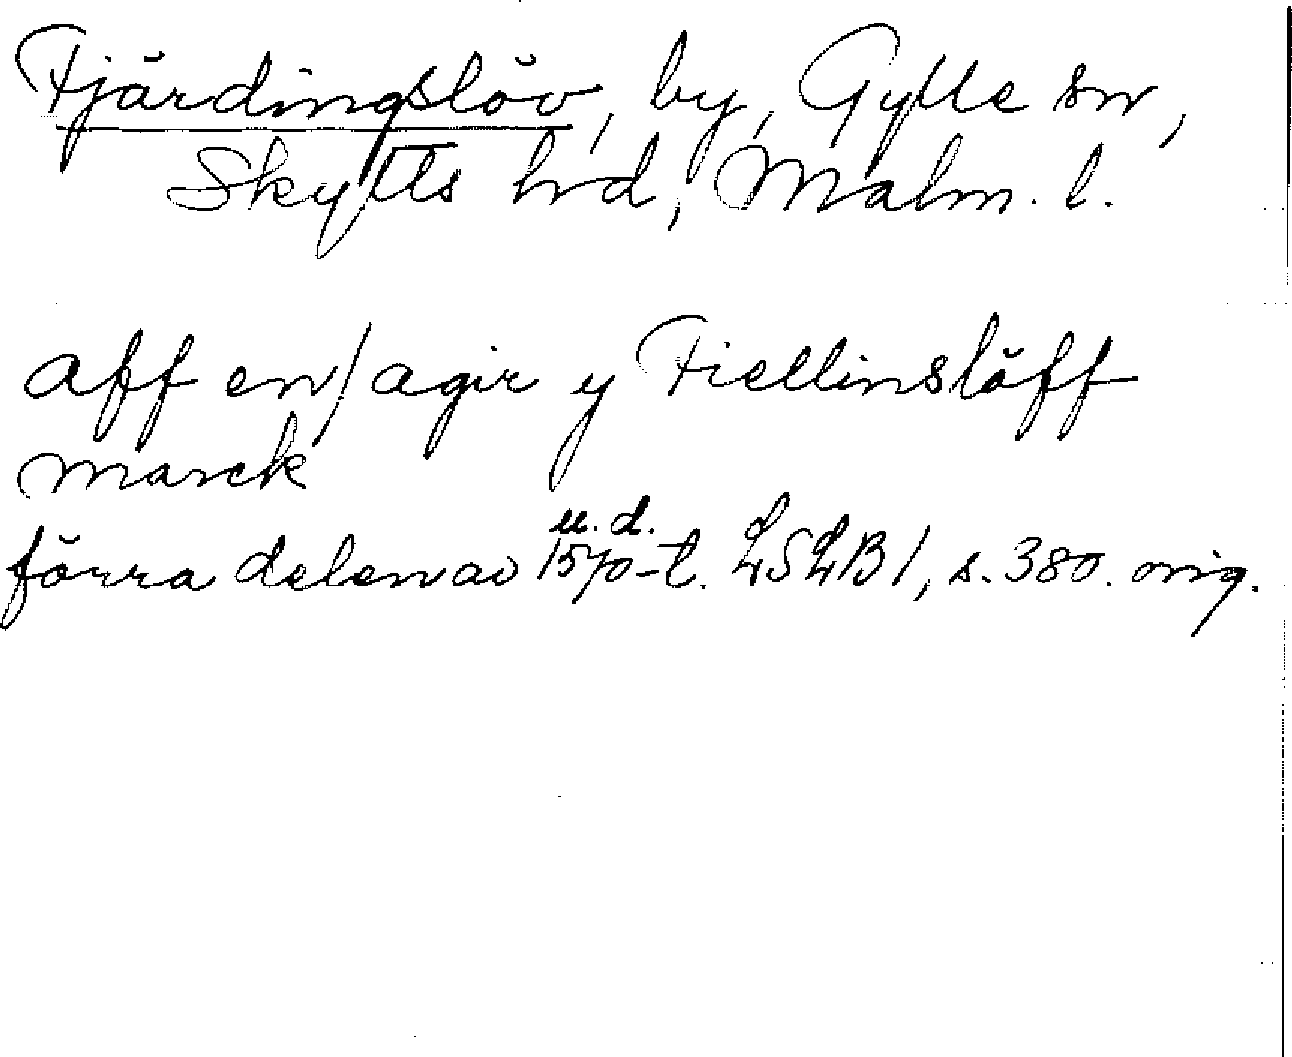 Fjärdingslöv, by, Gylle sn,
Skytts hrd, Malm. l.
aff en / agir y Fiellinslöff
marck
u. d.
förra delen av 1570-t. LSLB 1, s. 380. orig.